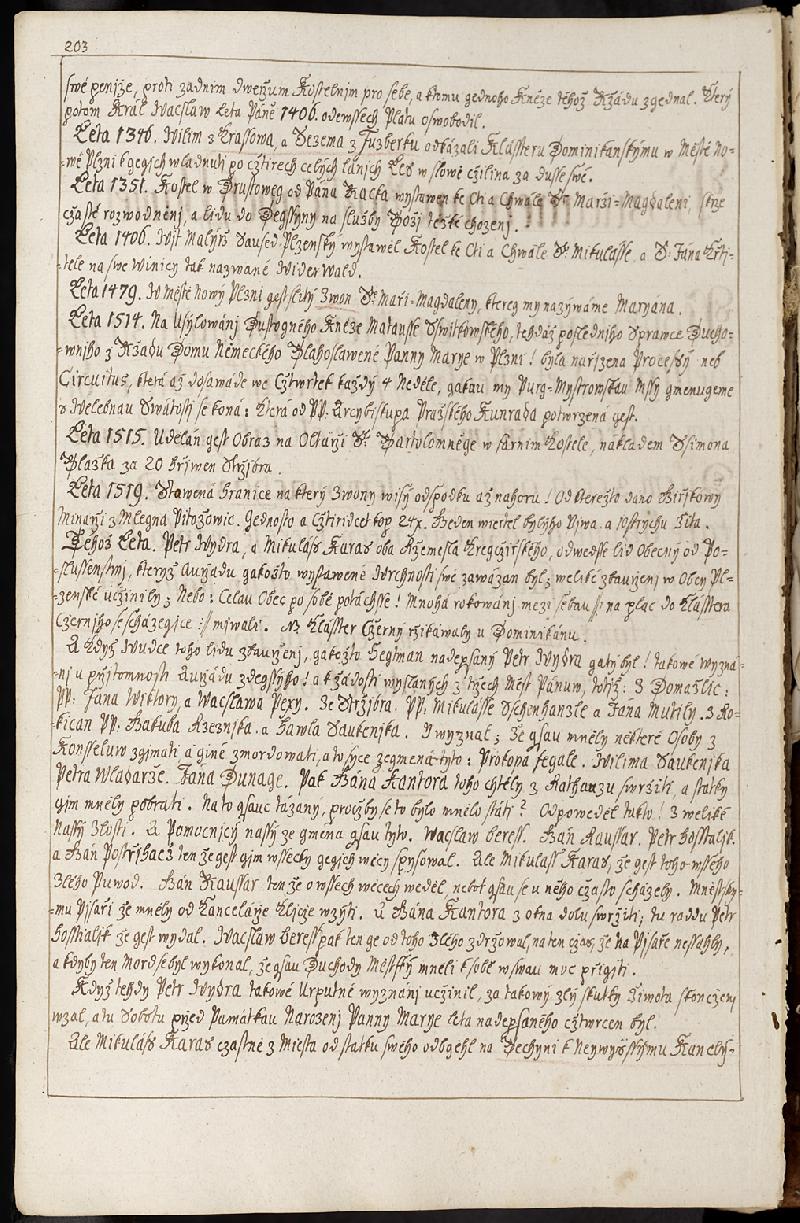 203
swé penjze, proti zadnim dwerzum Kostelnim pro sebe, a k tomu gednoho Kněze téhož Ržádu zgednal. Který
potom Král Wacslaw Leta Páně 1406. ode wssech Platu oswobodil.
Léta 1346. Wilim z Krassowa, a Sezema z Fuzberku odkázali Klássteru Dominikanskýmu w Městě No-
wé Plzni k gegich wladnuti po cžtirech celych lánjch Les w slowé cžilina za dusse swé.
Léta 1351. Kostel w Drustoweg od Pana Racka wystawen ke Cti a Chwále S. Marži-Magdaleni, skrze
cžasté rozwodněnj, a lidu do Degssyny na služby Božj těžké chozenj.
Léta 1406. Wjt Malyrž Saused Plzenský wystawěl Kostel ke Cti a Chwále S. Mikulásse, a S. Jána Krti-
tele na swé Winicy tak nazwané Widerwald.
Léta 1479. W Městě Nowý Plzni gest slitý Zwon S. Maří-Magdaleny, ktereg my nazýwáme Maryana.
Léta 1514. Na Usylowánj Dustogného Kněze Matausse Sswihowského, tehdáž poslednjho Sprawce Ducho-
wnjho z Ržadu Domu Německého Blahoslawené Panny Marye w Plzni! byla nařizena Processý neb
Circuitus, která až dosawáde we Cžtwrtek každý 4 Neděle, gakau my Purg-Mystrowskau Mssý gmenugeme
s Welebnau Swátostj se koná: Která od PP. Arcybiskupa Pražského Kunrada potwrzena gest.
Léta 1515. Udělán gest Obraz na Oltářj S. Bartolomněge w farním Kostele, nákladem Ssimona
Blažka za 20 hřjwen Stržjbra.
Léta 1519. Stawená hranice na který Zwony wisý od spodku až nahoru! Od kterežto dáno Biržkowy
Minaržj z Mlegna Pitožowic. Gednosto a Cžtiridcet kop 24 x. Sedem wiertel bylýho Piwa. a 10 strychu žita.
Téhož Léta. Petr Wydra, a Mikuláss Karas oba Ržemesla Kregcžjrského, odwedsse lid Obecný od Po-
slussenstwj, kterýž Auržadu gakožto wystawené Wrchnosti swé zawázan byl; weliké zbauženj w Obcy Pl-
zenské učžinili by; Nebo: Celau Obec po sobě potáhsse! Mnohá rokowánj mezi sebau gi na plac do Klásstera
Cžerného se scházegjce :/: mjwali. NB Klásster Cžerný ržikáwaly u Dominikánu.
A když Wudce toho lidu zbauženj, gakožto Hegtman nadepsaný Petr Wydra gatý byl! takowé wyzná-
nj u přjtomnosti Auržádu zdegssjho! a k žádosti wyslaných z tžech Měst Pánuw, totiž: Z Domažlic:
PP. Jána Wiktory, a Wacslawa Pexy. Ze Stržjbra. PP. Mikulásse Schonhanzle a Jana Mutily. Z Ro-
kican PP. Jakuba Ržeznjka. a Hawla Saukenjka. I wyznal; že gsau mněly některé Osoby z
Konsseluw zgjmati a giné zmordowati, a to syce zegména tyto: Prokopa Fegale. Wilima Saukenjka
Petra Wladarže. Jana Dunage. Pak Jána Kantora toho chtěly z Rathauzu swržiti, a statky
gim mněly pobrati. Na to gsauc tázany, proižby se to bylo mnělo státi? Odpowěděl takto! z weliké
Nassý Zlosti. A Pomocnjcy nassý ze gmena gsau tyto. Wacslaw Beress. Ján Raussar. Petr Hosstialek.
a Ján Postržihacž ten že gest gim wssecky gegich wěcy spysowal. Ale Mikuláss Karas, že gest toho wsseho
Zlého Puwod. Ján Raussar ten že o wssech wěcech wěděl, nebot gsau se u něho cžasto scházely. Městský-
mu Pjsaři že mněly od Kancelárže Kljcže wzýti. A Jána Kantora z okna dolu swržiti; tu raddu Petr
Hosstialek že gest wydal. Wacslaw Beress pak ten ge od toho Zlého zdržowal, na ten cžas, že na Pjsaře nesskhly,
a kdyby ten Mord se byl wykonal, že gsau Duchody Městský mněli k sobě w swau moc přigjti.
Když tehdy Petr Wydra takowé Urputné wyznánj ucžinil, za takowý zlý skutky žiwota skoncženj
wzal, a tu Sobotu přjed Památkau Narozenj Panny Marye léta nadepsaného cžtwrcen byl.
Ale Mikuláss Karas cžastně z Města od statku swého odběgehl na Bechyni k Neywyžssjmu Kanclýř-